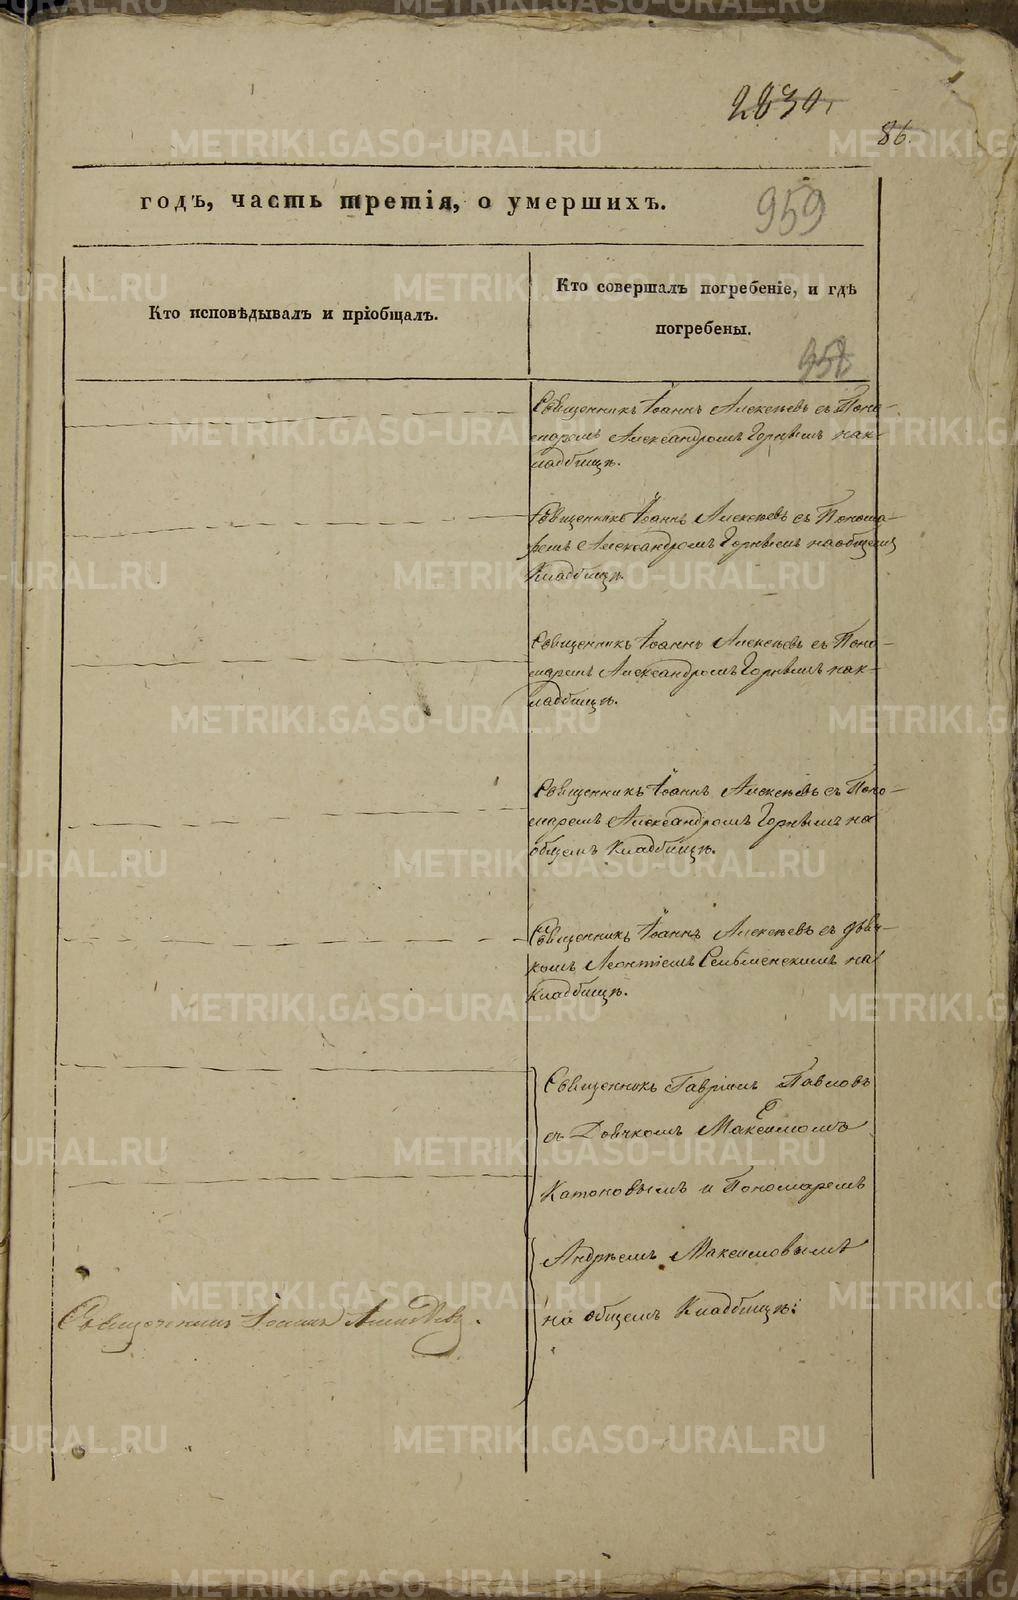 2830.
86.
годъ, часть третія, о умершихъ.
959
Кто исповѣдывалъ и пріобщалъ.
Кто совершалъ погребеніе, и гдѣ
погребены.
958
Священникъ Іоаннъ Алексѣевъ съ Поно-
маремъ Александромъ Горнымъ на к-
ладбищѣ.
Священникъ Іоаннъ Алексѣевъ съ Понома-
ремъ Александромъ Горнымъ на общемъ
Кладбищѣ.
Священникъ Іоаннъ Алексѣевъ съ Поно-
маремъ Александромъ Горнымъ на к-
ладбищѣ.
Священникъ Іоаннъ Алексѣевъ съ Поно-
маремъ Александромъ Горнымъ на
общемъ Кладбищѣ.
Священникъ Іоаннъ Алексѣевъ съ дьяч-
комъ Леонтіемъ на
Кладбищѣ.
Священникъ Гавріилъ Павловъ
съ Дьячкомъ Максимомъ
Катоновымъ и Пономаремъ
Андрѣемъ Максимовымъ
на общемъ Кладбищѣ.
Священникъ Іоаннъ
METRIKI.GASO-URAL.RU